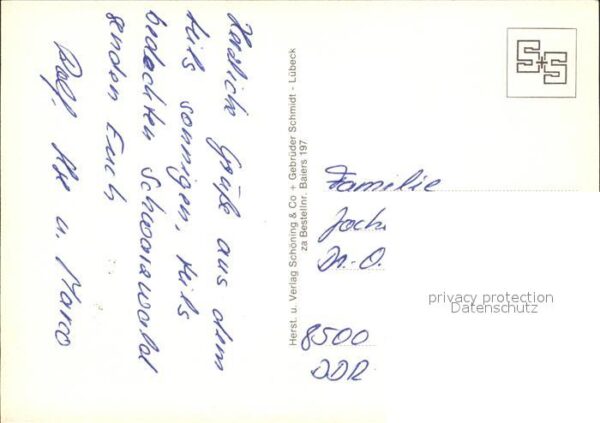 Herzliche Grüße aus dem
teils sonnigen, teils
bedeckten Schwarzwald
senden Euch
Rolf, u. Marco
Herst. u. Verlag Schöning & Co + Gebrüder Schmidt - Lübeck
za Bestellnr. Baiers 197
S+S
Familie
8500
DDR
privacy protection
Datenschutz